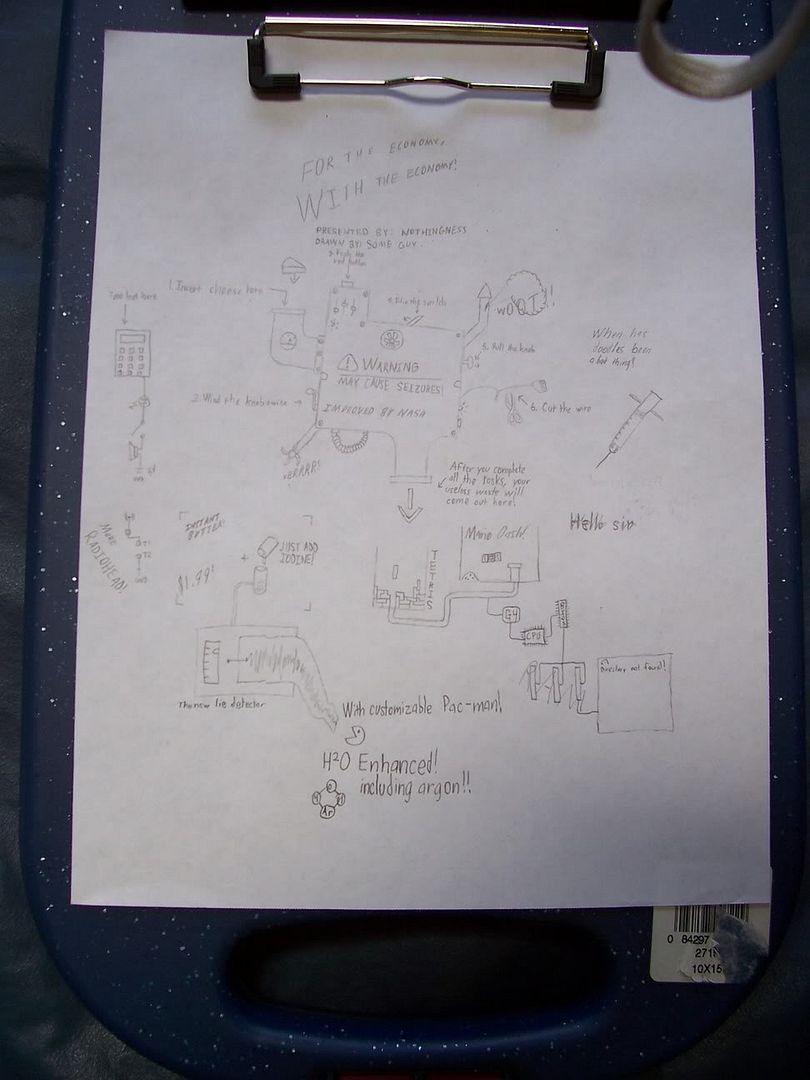 FOR THE ECONOMY,
WITH THE ECONOMY!
PRESENTED BY: NOTHINGNESS
DRAWN BY: SOME GUY.
3. Push the
red button
1. Insert cheese here
Your text here
4. Flip the switch
WOOT!!
5. Pull the knob
When has
doodles been
a bad thing?
WARNING
MAY CAUSE SEIZURES!
2. Wind the
IMPROVED BY NASA
6. Cut the wire
VERRRR!
After you complete
all the tasks, your
useless waste will
come out here!
Hello sir
MORE
RADIOHEAD!
T1
T2
INSTANT
BUTTER!
$1.99!
+
JUST ADD
IODINE!
TETRIS
Mario Dash!
G4
CPU
Directory not found!
The new lie detector
With customizable Pac-man!
H2O Enhanced!
including argon!!
O
H
H
Ar
0 84297
271
10X15